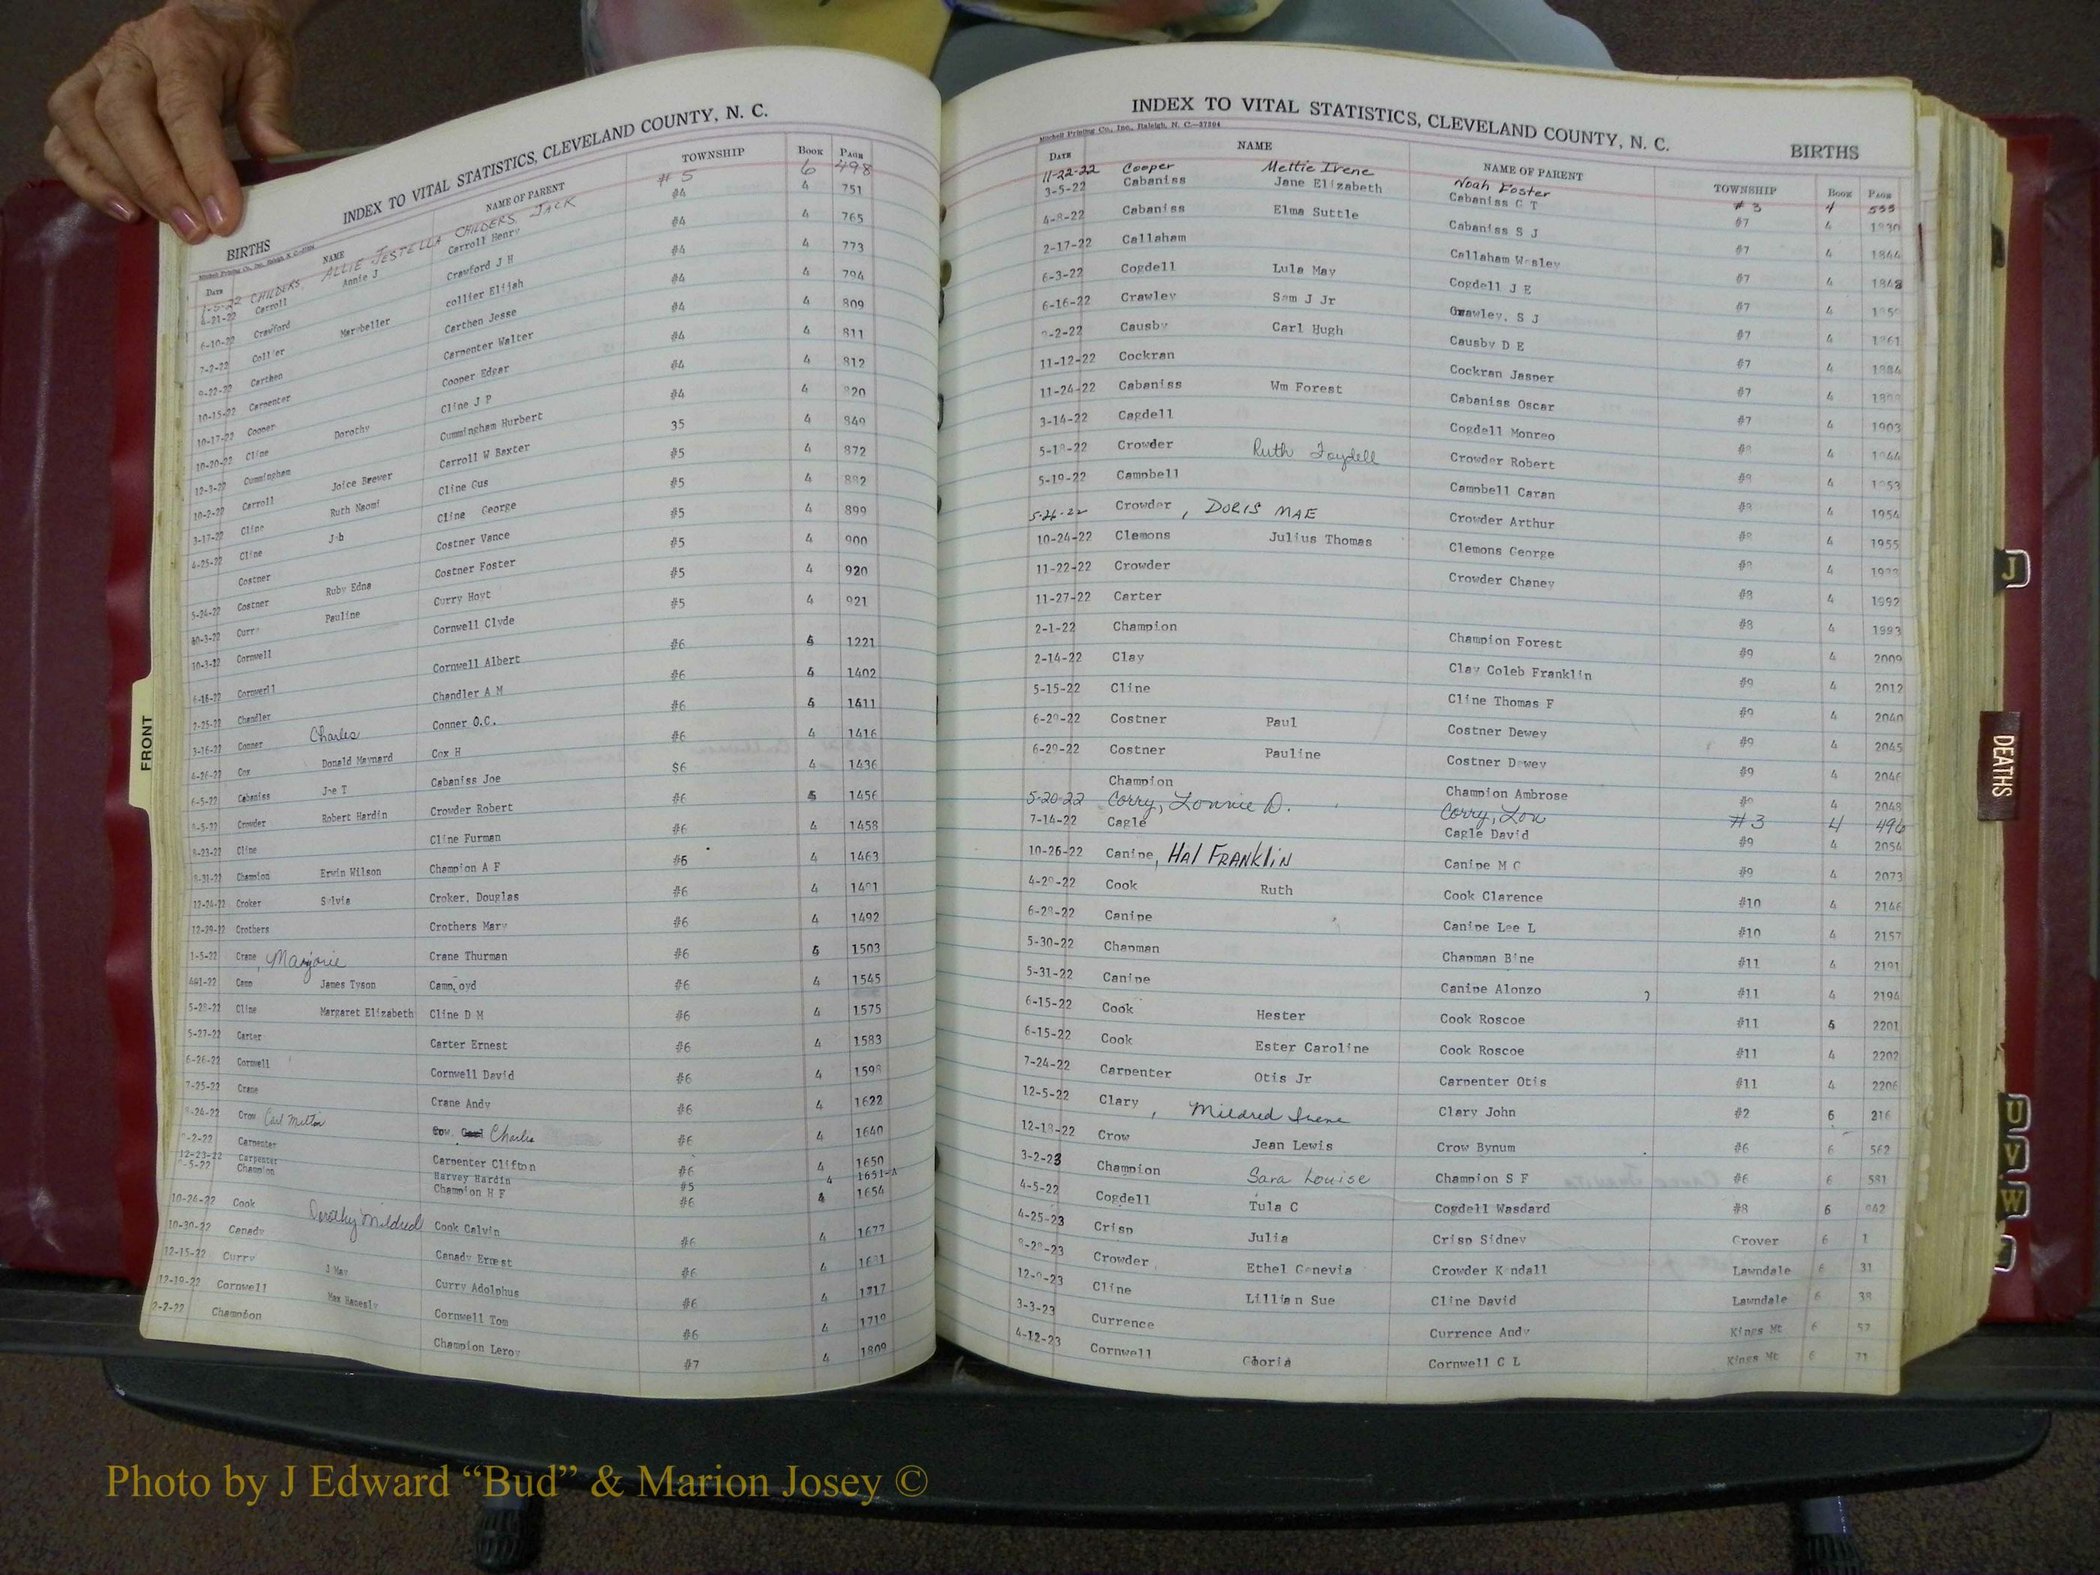 INDEX TO VITAL STATISTICS, CLEVELAND COUNTY, N. C.
BIRTHS
DATE NAME NAME OF PARENT TOWNSHIP BOOK PAGE
1-5-22 CHILDERS, ALLIE JESTELLA CHILDERS, JACK #5 6 498
4-21-22 Carroll Annie J Carroll Henry #4 4 751
6-10-22 Crawford Crawford J H #4 4 765
7-2-22 Collier Marybeller collier Elijah #4 4 773
9-22-22 Carthen Carthen Jesse #4 4 794
10-15-22 Carpenter Carpenter Walter #4 4 809
10-17-22 Cooper Cooper Edgar #4 4 811
10-20-22 Cline Dorothy Cline J P #4 4 812
12-3-22 Cummingham Cummingham Hurbert #4 4 820
10-2-22 Carroll Joice Brewer Carroll W Baxter 35 4 849
3-17-22 Cline Ruth Naomi Cline Gus #5 4 872
4-25-22 Cline Cline George #5 4 882
Costner Costner Vance #5 4 899
5-24-22 Costner Ruby Edna Costner Foster #5 4 900
Pauline Curry Hoyt #5 4 920
10-3-22 Cornwell Cornwell Clyde #5 4 921
Cornwell Albert #6 4 1221
2-25-22 Chandler Chandler A M #6 4 1402
3-16-22 Conner Charles Conner O.C. #6 4 1411
4-26-22 Cox Donald Maynard Cox H #6 4 1416
6-5-22 Cabaniss Joe T Cabaniss Joe $6 4 1436
Crowder Robert Hardin Crowder Robert #6 4 1456
8-23-22 Cline Cline Furman #6 4 1458
8-31-22 Champion Erwin Wilson Champion A F #6 4 1463
12-24-22 Croker Sylvia Croker, Douglas #6 4 1491
12-29-22 Crothers Crothers Mary #6 4 1492
1-5-22 Crane, Marjorie Crane Thurman #6 4 1503
Camp James Tyson #6 4 1545
5-28-22 Cline Margaret Elizabeth Cline D M #6 4 1575
5-27-22 Carter Carter Ernest #6 4 1583
6-26-22 Cornwell Cornwell David #6 4 1598
7-25-22 Crane Crane Andy #6 4 1622
8-24-22 Crow Carl Milton Charles #6 4 1640
9-2-22 Carpenter Carpenter Clifton #6 4 1650
12-23-22 Carpenter Harvey Hardin #5 4 1651-A
9-5-22 Champion Champion H F #6 4 1654
10-24-22 Cook Dorothy Mildred Cook Calvin #6 4 1677
10-30-22 Canady Canady Ernest #6 4 1691
12-15-22 Curry J May Curry Adolphus #6 4 1717
12-19-22 Cornwell Max Hanesly Cornwell Tom #6 4 1719
2-2-22 Champion Champion Leroy #7 4 1809
INDEX TO VITAL STATISTICS, CLEVELAND COUNTY, N. C.
Mitchell Printing Co., Inc., Raleigh, N. C.—37204
BIRTHS
DATE NAME NAME OF PARENT TOWNSHIP BOOK PAGE
11-22-22 Cooper Mettie Irene Noah Foster #3 4 555
3-5-22 Cabaniss Jane Elizabeth Cabaniss C T #7 4 1830
4-8-22 Cabaniss Elma Suttle Cabaniss S J #7 4 1844
2-17-22 Callaham Callaham Wesley #7 4 1848
6-3-22 Cogdell Lula May Cogdell J E #7 4
6-16-22 Crawley Sam J Jr Crawley, S J #7 4
9-2-22 Causby Carl Hugh Causby D E #7 4 1884
11-12-22 Cockran Cockran Jasper #7 4
11-24-22 Cabaniss Wm Forest Cabaniss Oscar #7 4 1903
3-14-22 Cagdell Cogdell Monreo #8 4 1944
5-18-22 Crowder Ruth Faydell Crowder Robert #8 4 1953
5-19-22 Campbell Campbell Caran #8 4 1954
5-26-22 Crowder, DORIS MAE Crowder Arthur #8 4 1955
10-24-22 Clemons Julius Thomas Clemons George #8 4
11-22-22 Crowder Crowder Chaney #8 4 1992
11-27-22 Carter #8 4 1993
2-1-22 Champion Champion Forest #9 4 2009
2-14-22 Clay Clay Coleb Franklin #9 4 2012
5-15-22 Cline Cline Thomas F #9 4 2040
6-29-22 Costner Paul Costner Dewey #9 4 2045
6-29-22 Costner Pauline Costner Dewey #9 4 2046
Champion Champion Ambrose #9 4 2048
5-20-22 Corry, Lonnie D. Corry, Lon #3 4 496
7-14-22 Cagle Cagle David #9 4 2054
10-26-22 Canipe, HAL FRANKLIN Canipe M C #9 4 2073
4-29-22 Cook Ruth Cook Clarence #10 4 2146
6-28-22 Canipe Canipe Lee L #10 4 2157
5-30-22 Chapman Chapman Bine #11 4 2191
5-31-22 Canipe Canipe Alonzo #11 4 2194
6-15-22 Cook Hester Cook Roscoe #11 4 2201
6-15-22 Cook Ester Caroline Cook Roscoe #11 4 2202
7-24-22 Carpenter Otis Jr Carpenter Otis #11 4 2206
12-5-22 Clary, Mildred Irene Clary John #2 6 216
12-18-22 Crow Jean Lewis Crow Bynum #6 6 562
3-2-23 Champion Sara Louise Champion S F #6 6 581
4-5-22 Cogdell Tula C Cogdell Wasdard #8 6 942
4-25-23 Crisp Julia Crisp Sidney Grover 6 1
9-29-23 Crowder Ethel Genevia Crowder Kendall Lawndale 6 31
12-9-23 Cline Lillian Sue Cline David Lawndale 6 38
3-3-23 Currence Currence Andy Kings Mt 6 57
4-12-23 Cornwell Gloria Cornwell C L Kings Mt 6 71
FRONT
J
DEATHS
U
V
W
Photo by J Edward “Bud” & Marion Josey ©